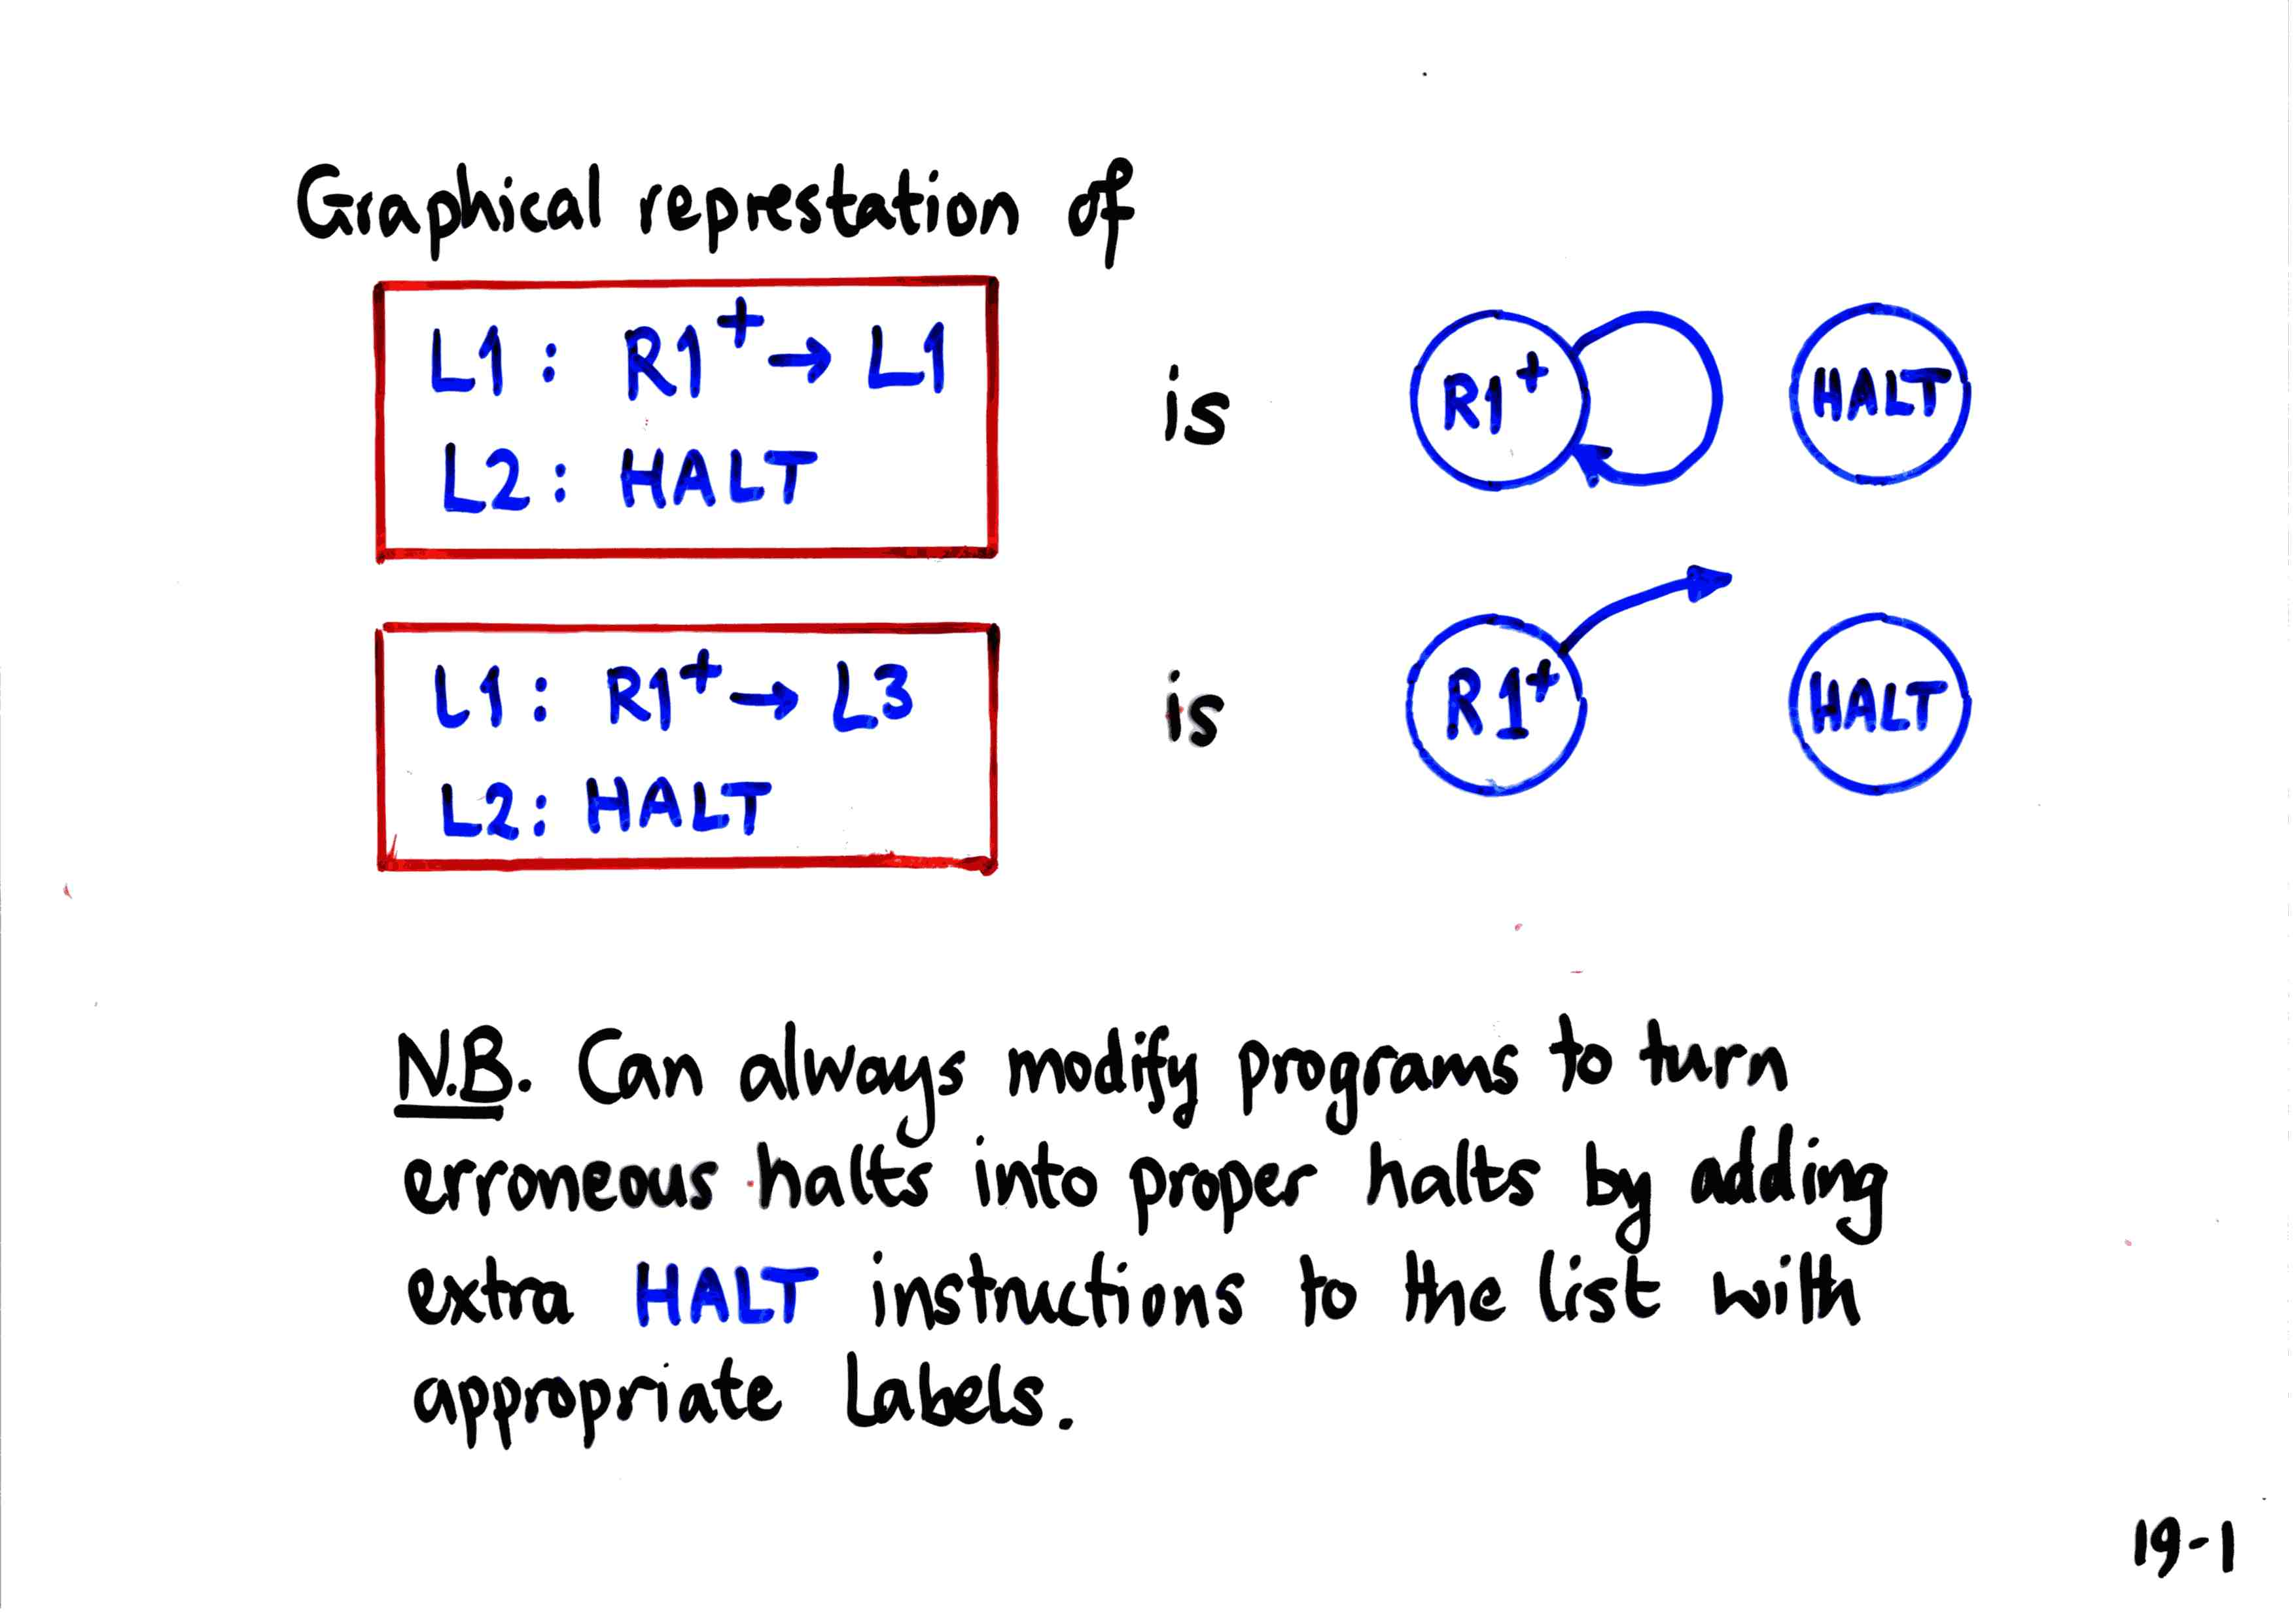 Graphical represtation of
L1 : R1⁺ → L1
L2 : HALT
is
R1⁺
HALT
L1 : R1⁺ → L3
L2 : HALT
is
R1⁺
HALT
N.B. Can always modify programs to turn
erroneous halts into proper halts by adding
extra HALT instructions to the list with
appropriate labels.
19-1